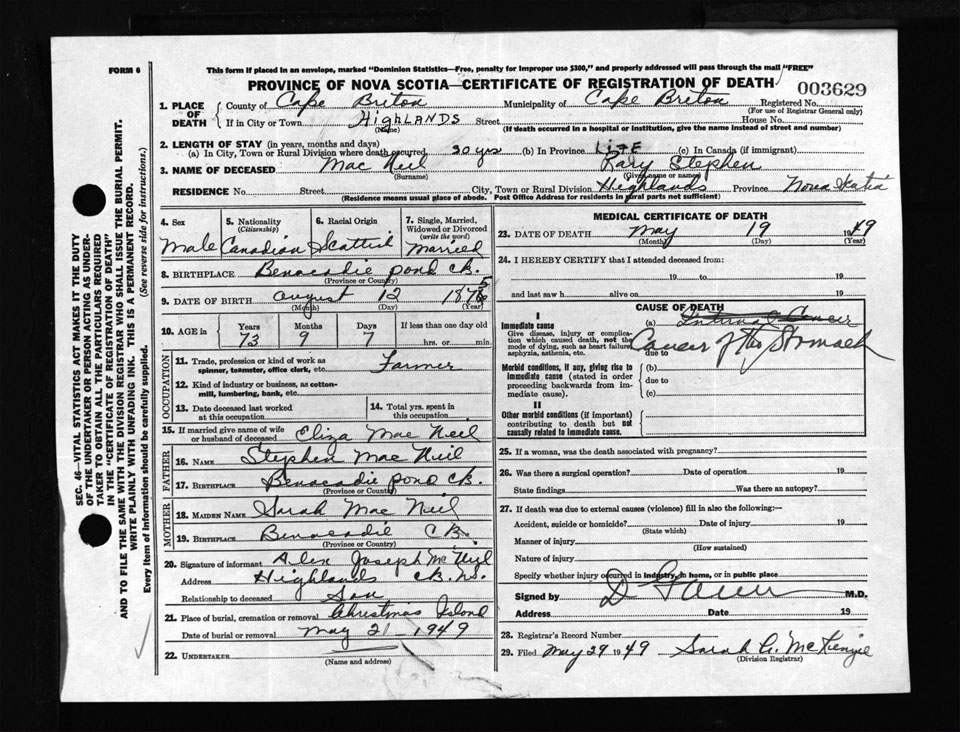 FORM 6
This form if placed in an envelope, marked "Dominion Statistics—Free, penalty for improper use $300," and properly addressed will pass through the mail "FREE"
PROVINCE OF NOVA SCOTIA—CERTIFICATE OF REGISTRATION OF DEATH
003629
1. PLACE OF DEATH County of Cape Briton Municipality of Cape Briton Registered No.
(For use of Registrar General only)
If in City or Town HIGHLANDS Street House No.
(Name) (If death occurred in a hospital or institution, give the name instead of street and number)
2. LENGTH OF STAY (in years, months and days)
(a) In City, Town or Rural Division where death occurred 30 yrs (b) In Province LIFE (c) In Canada (if immigrant)
3. NAME OF DECEASED Mac Neil Rary Stephen
(Surname) (Given name or names)
RESIDENCE No. Street City, Town or Rural Division Highlands Province Nova Scotia
(Residence means usual place of abode. Post Office Address for residents in rural parts not sufficient)
4. Sex
Male
5. Nationality
(Citizenship)
Canadian
6. Racial Origin
Scottish
7. Single, Married, Widowed or Divorced
(write the word)
Married
8. BIRTHPLACE Benacadie pond CB.
(Province or Country)
9. DATE OF BIRTH August 12 1875
(Month) (Day) (Year)
10. AGE in
Years Months Days If less than one day old
73 9 7 hrs. or min.
OCCUPATION
11. Trade, profession or kind of work as spinner, teamster, office clerk, etc. Farmer
12. Kind of industry or business, as cotton-mill, lumbering, bank, etc.
13. Date deceased last worked at this occupation
14. Total yrs. spent in this occupation
15. If married give name of wife or husband of deceased Eliza Mac Neil
FATHER
16. NAME Stephen Mac Neil
17. BIRTHPLACE Benacadie pond CB.
(Province or Country)
MOTHER
18. MAIDEN NAME Sarah Mac Neil
19. BIRTHPLACE Benacadie CB.
(Province or Country)
20. Signature of informant Alen Joseph McNeil
Address Highlands CB. NS.
Relationship to deceased Son
21. Place of burial, cremation or removal Christmas Island
Date of burial or removal May 21 - 1949
22. UNDERTAKER
(Name and address)
MEDICAL CERTIFICATE OF DEATH
23. DATE OF DEATH May 19 1949
(Month) (Day) (Year)
24. I HEREBY CERTIFY that I attended deceased from:
19 to 19
and last saw h alive on 19
CAUSE OF DEATH
I
Immediate cause
Give disease, injury or complication which caused death, not the mode of dying, such as heart failure, asphyxia, asthenia, etc.
(a) Internal Cancer
Cancer of the Stomach
due to
Morbid conditions, if any, giving rise to immediate cause (stated in order proceeding backwards from immediate cause).
(b)
due to
(c)
II
Other morbid conditions (if important) contributing to death but not causally related to immediate cause.
25. If a woman, was the death associated with pregnancy?
26. Was there a surgical operation? Date of operation 19
State findings Was there an autopsy?
27. If death was due to external causes (violence) fill in also the following:—
Accident, suicide or homicide? Date of injury 19
(State which)
Manner of injury
(How sustained)
Nature of injury
Specify whether injury occurred in industry, in home, or in public place
Signed by M.D.
Address Date 19
28. Registrar's Record Number
29. Filed May 29 1949 Sarah C. McKenzie
(Division Registrar)
SEC. 46—VITAL STATISTICS ACT MAKES IT THE DUTY
OF THE UNDERTAKER OR PERSON ACTING AS UNDER-
TAKER TO OBTAIN ALL THE PARTICULARS REQUIRED
IN THE "CERTIFICATE OF REGISTRATION OF DEATH"
AND TO FILE THE SAME WITH THE DIVISION REGISTRAR WHO SHALL ISSUE THE BURIAL PERMIT.
WRITE PLAINLY WITH UNFADING INK. THIS IS A PERMANENT RECORD.
Every item of information should be carefully supplied. (See reverse side for instructions.)